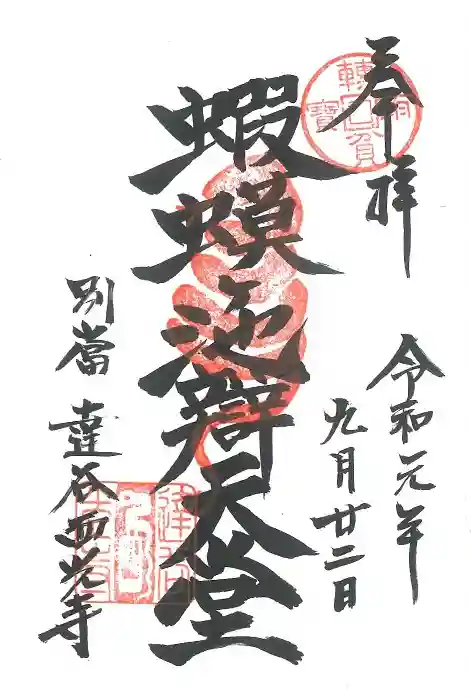 奉拝
令和元年
九月廿二日
蝦蟆池辯天堂
別當 達谷西光寺
轉貧